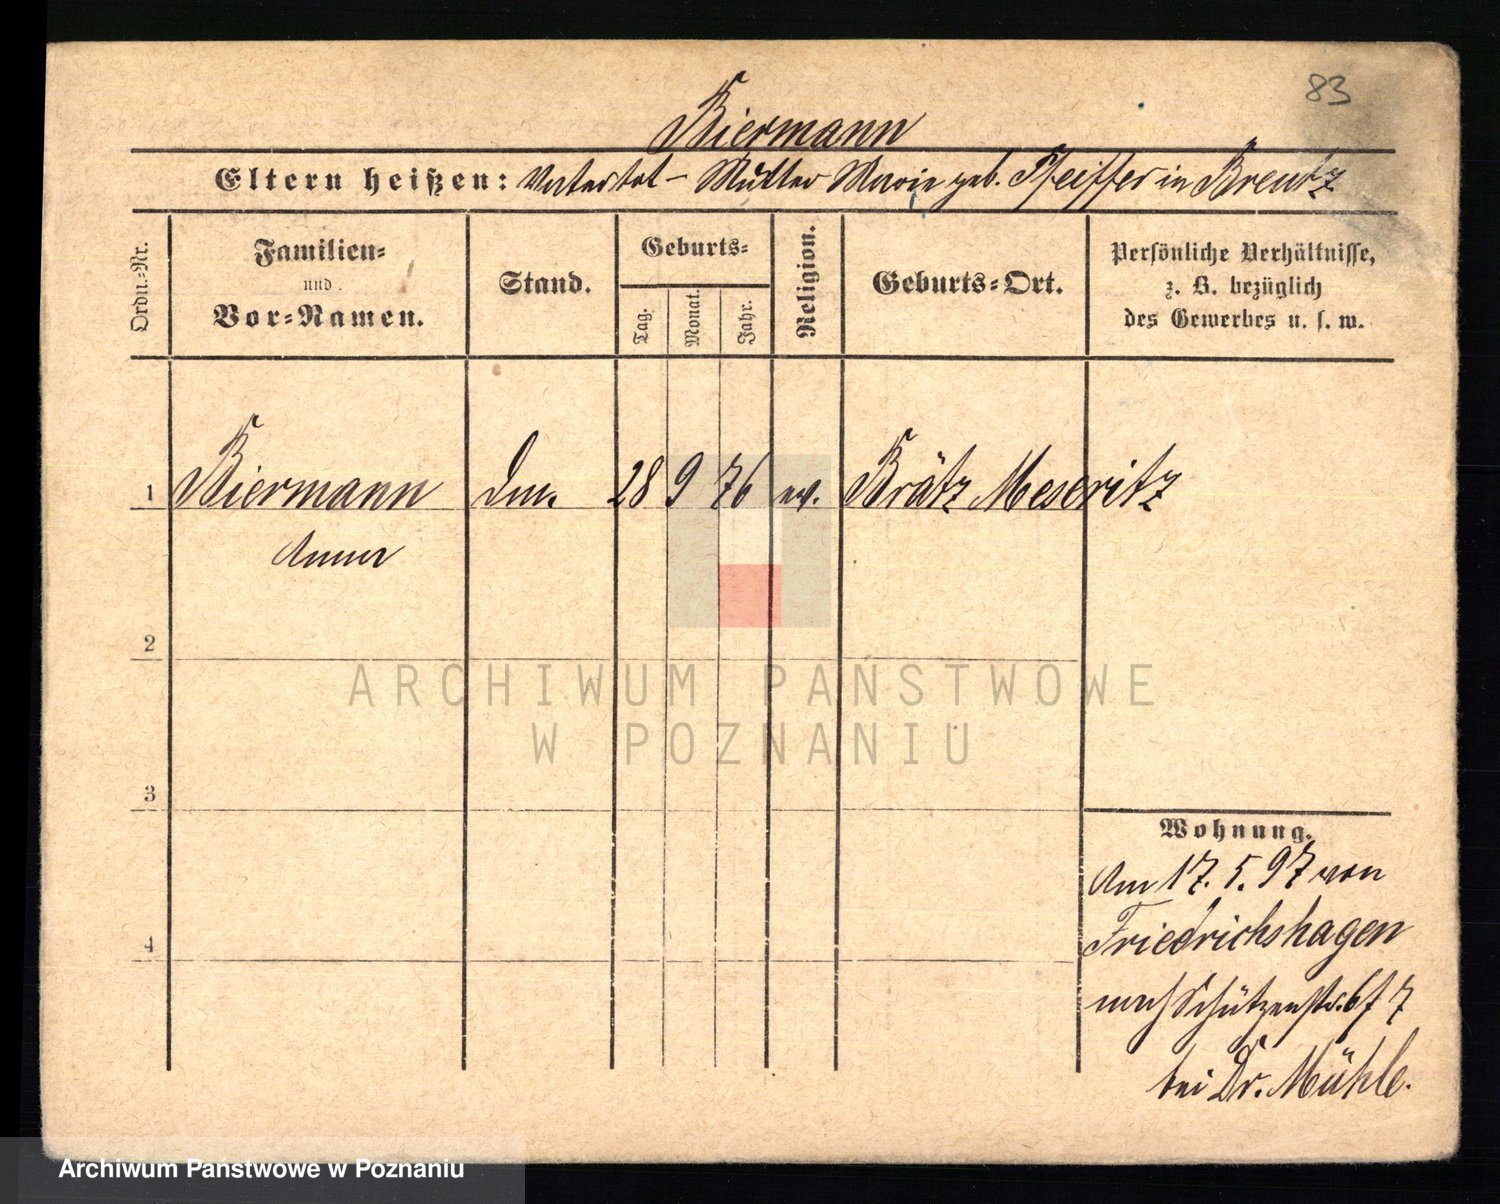 83
Biermann
Eltern heißen: Vater tot – Mutter Marie geb. Pfeiffer in Brentz
Ordn.-Nr.
Familien-
und
Vor-Namen.
Stand.
Geburts-
Tag.
Monat.
Jahr.
Religion.
Geburts-Ort.
Persönliche Verhältnisse,
z. B. bezüglich
des Gewerbes u. s. w.
1 Biermann 28 9 76 ev. Brätz Meseritz
Anna
2
ARCHIWUM PAŃSTWOWE
W POZNANIU
3
Wohnung.
Am 17. 5. 97 von
Friedrichshagen
4
nach Schützenstr. 6/7
bei Dr. Mühle.
Archiwum Państwowe w Poznaniu